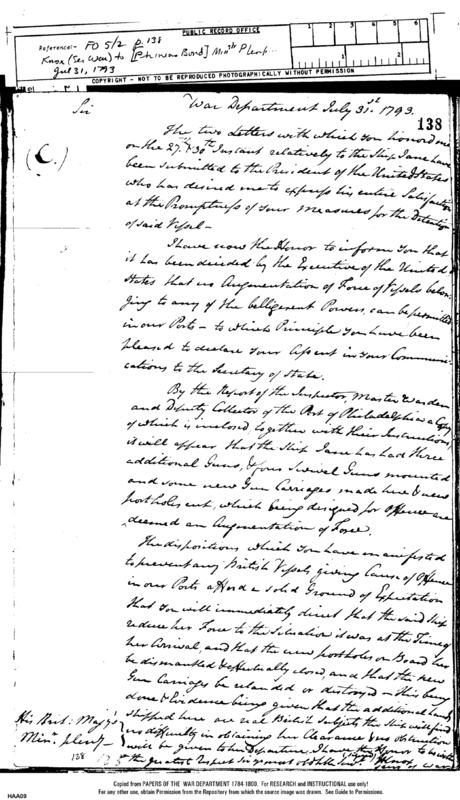 PUBLIC RECORD OFFICE
Reference:- FO 5/2 p. 138
Knox (Sec War) to [Phineas Bond] Min Plenp..
Jul 31, 1793
COPYRIGHT - NOT TO BE REPRODUCED PHOTOGRAPHICALLY WITHOUT PERMISSION
War Department July 31st. 1793.
138
Sir
(C.)
The two Letters with which you honored me
on the 27. & 30th Instant relatively to the Ship Jane have
been submitted to the President of the United States
who has desired me to express his entire Satisfaction
at the Promptness of your Measures for the Detention
of said Vessel -
I have now the Honor to inform you that
it has been decided by the Executive of the United
States that no Augmentation of Force of Vessels belon-
ging to any of the belligerent Powers, can be permitted
in our Ports - to which Principle you have been
pleased to declare your Assent in your Communi-
cations to the Secretary of State.
By the Report of the Inspector, Master Warden
and Deputy Collector of the Port of Philadelphia a Copy
of which is inclosed together with their Instructions,
it will appear that the Ship Jane has had three
additional Guns, & four Swivel Guns mounted
and some new Gun Carriages made here & new
portholes cut, which being designed for Offence are
deemed an Augmentation of Force.
The dispositions which you have manifested
to prevent any British Vessels giving Cause of Offence
in our Ports afford a solid Ground of Expectation
that you will immediately direct that the said Ship
reduce her Force to the Situation it was at the Time of
her Arrival, and that the new portholes on Board her
be dismantled & effectually closed, and that the new
Gun Carriages be relanded or destroyed - this being
done & Evidence being given that the additional hands
shipped here are all British Subjects the Ship will find
no difficulty in obtaining her Clearance & no obstruction
will be given to her Departure. I have the Honor to be with
the greatest Respect
His Brit: Majy's
Minr. plenp -
138
HAA09
Copied from PAPERS OF THE WAR DEPARTMENT 1784-1800. For RESEARCH and INSTRUCTIONAL use only!
For any other use, obtain Permission from the Repository from which the source image was drawn. See Guide to Permissions.